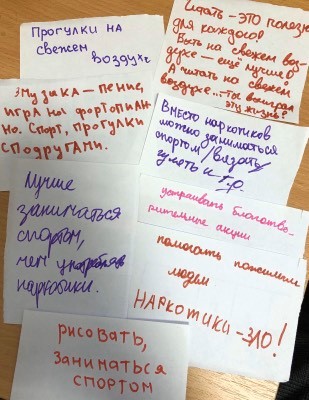 Прогулки на
свежем
воздухе
Читать – ЭТО полезно
для каждого!
Быть на свежем воз-
духе – ещё лучше!
А читать на свежем
воздухе... ты выиграл
эту жизнь!
Музыка – пение,
игра на фортопиан-
но. Спорт, прогулки
с подругами.
Вместо наркотиков
можно заниматься
спортом/вязать/
гулять и т.д.
Лучше
заниматься
спортом,
чем употреблять
наркотики.
устраивать благотво-
рительные акции
помогать пожилым
людям
НАРКОТИКИ – ЗЛО!
рисовать,
заниматься
спортом